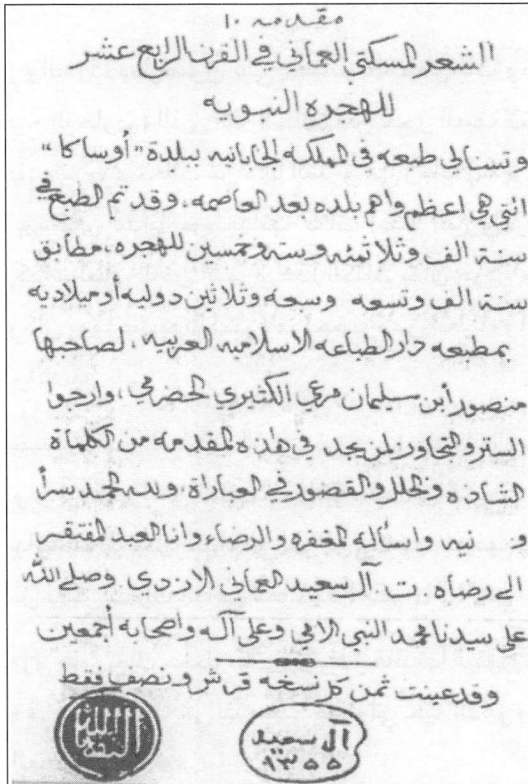 مقدمه ١٠
الشعر المسكتي العماني في القرن الرابع عشر
للهجره النبويه
وتسنا لي طبعه في المملكه اليابانيه ببلدة "اوساكا"
التي هي اعظم واهم بلده بعد العاصمه، وقد تم الطبع في
سنة الف وثلاثمئه وسته وخمسين للهجره، مطابق
سنة الف وتسعه وسعه وثلاثين دوليه أو ميلاديه
بمطبعه دار الطباعه الاسلاميه العربيه، لصاحبها
منصور أبن سليمان مرعي الكثيري الحضرمي، وارجوا
الستر والتجاوز لمن يجد في هاذه المقدمه من الكلماة
الشاذه والخلل والقصور في العباراة ولله الحمد سرأ
و نيه واسأله المغفره والرضاء وانا العبد المفتقر
الى رضاه. ت. آل سعيد العماني الازدي وصلي الله
على سيدنا محمد النبي الامي وعلى آله واصحابه أجمعين
وقد عينت ثمن كل نسخه قرش ونصف فقط
آل سعيد
١٣٥٥